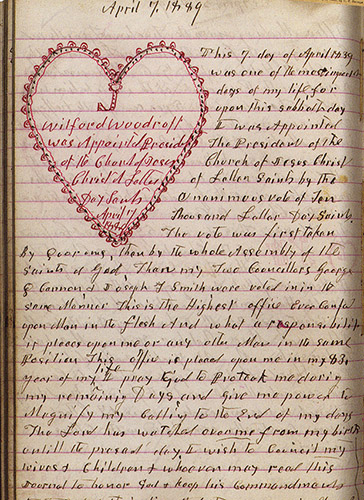 April 7, 1889
This 7 day of April 1889
was one of the most important
days of my life for
upon this sabbath day
Wilford Woodruff
I was Appointed
was Appointed Presid
The President of the
of the Church of Jesus
Church of Jesus Christ
Christ of Latter
of Latter Saints by the
Day Saints
unanimous vote of Ten
April 7
Thousand Latter Day Saints.
1889
The vote was first taken
By Quorums, then by the whole Assembly of the
Saints of God. Then my Two Councillors George
Q Cannon & Joseph F Smith were voted in in the
same Manner. This is the Highest office Ever Confered
upon Man in the flesh And what a responsibility
it places upon me or any other Man in the same
Position This office is placed upon me in my 83
year of my life I pray God to Protect me during
my remaining Days, and give me power to
Magnify my Calling to the End of my days
The Lord has watched over me from my birth
untill the present day. I wish to Council my
wives & Children & whoever may read this
Journal to honor God & keep his Commandments